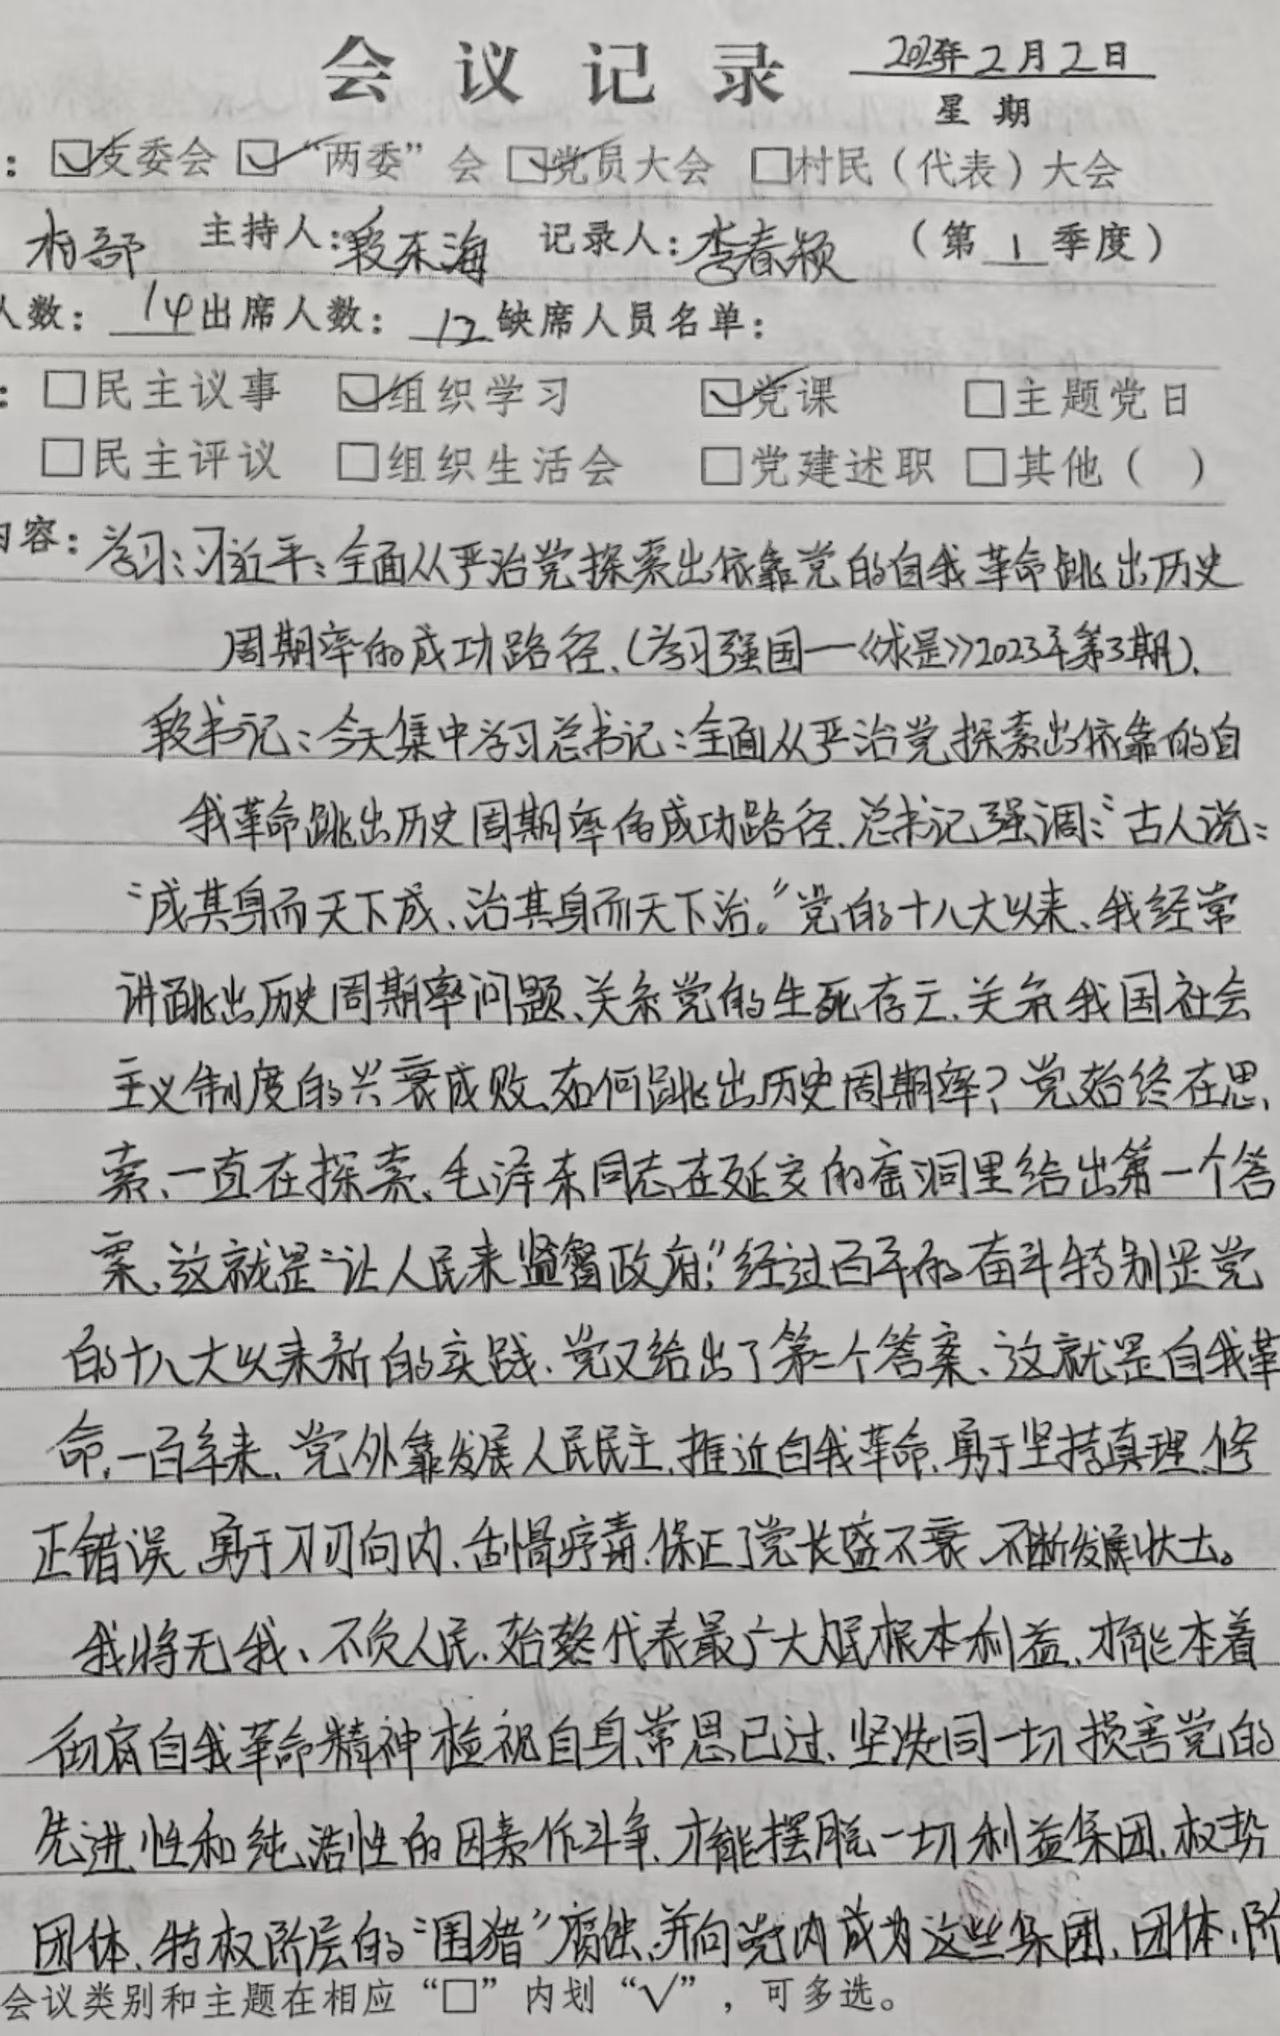 会议记录 2023年2月2日
星期
：☑支委会 ☑“两委”会 ☑党员大会 □村民（代表）大会
村部 主持人：段东海 记录人：李春颖 （第1季度）
人数：14出席人数：12缺席人员名单：
：□民主议事 ☑组织学习 ☑党课 □主题党日
□民主评议 □组织生活会 □党建述职 □其他（ ）
内容：学习：习近平：全面从严治党探索出依靠党的自我革命跳出历史
周期率的成功路径.（学习强国—《求是》2023年第3期）.
段书记：今天集中学习总书记：全面从严治党探索出依靠的自
我革命跳出历史周期率的成功路径.总书记强调：“古人说：
“成其身而天下成、治其身而天下治。”党的十八大以来、我经常
讲跳出历史周期率问题、关系党的生死存亡.关系我国社会
主义制度的兴衰成败、如何跳出历史周期率？党始终在思
索、一直在探索、毛泽东同志在延安的窑洞里给出第一个答
案、这就是“让人民来监督政府；”经过百年的奋斗特别是党
的十八大以来新的实践、党又给出了第二个答案、这就是自我革
命，一百年来、党外靠发展人民民主、推近自我革命、勇于坚持真理、修
正错误、勇于刀刃向内、刮骨疗毒、保正了党长盛不衰、不断发展壮大。
我将无我、不负人民、始终代表最广大人民根本利益、才能本着
彻底自我革命精神检视自身、常思己过、坚决同一切损害党的
先进性和纯洁性的因素作斗争、才能摆脱一切利益集团、权势
团体、特权阶层的“围猎”腐蚀、并向党内成为这些集团、团体、阶
会议类别和主题在相应“□”内划“√”，可多选。